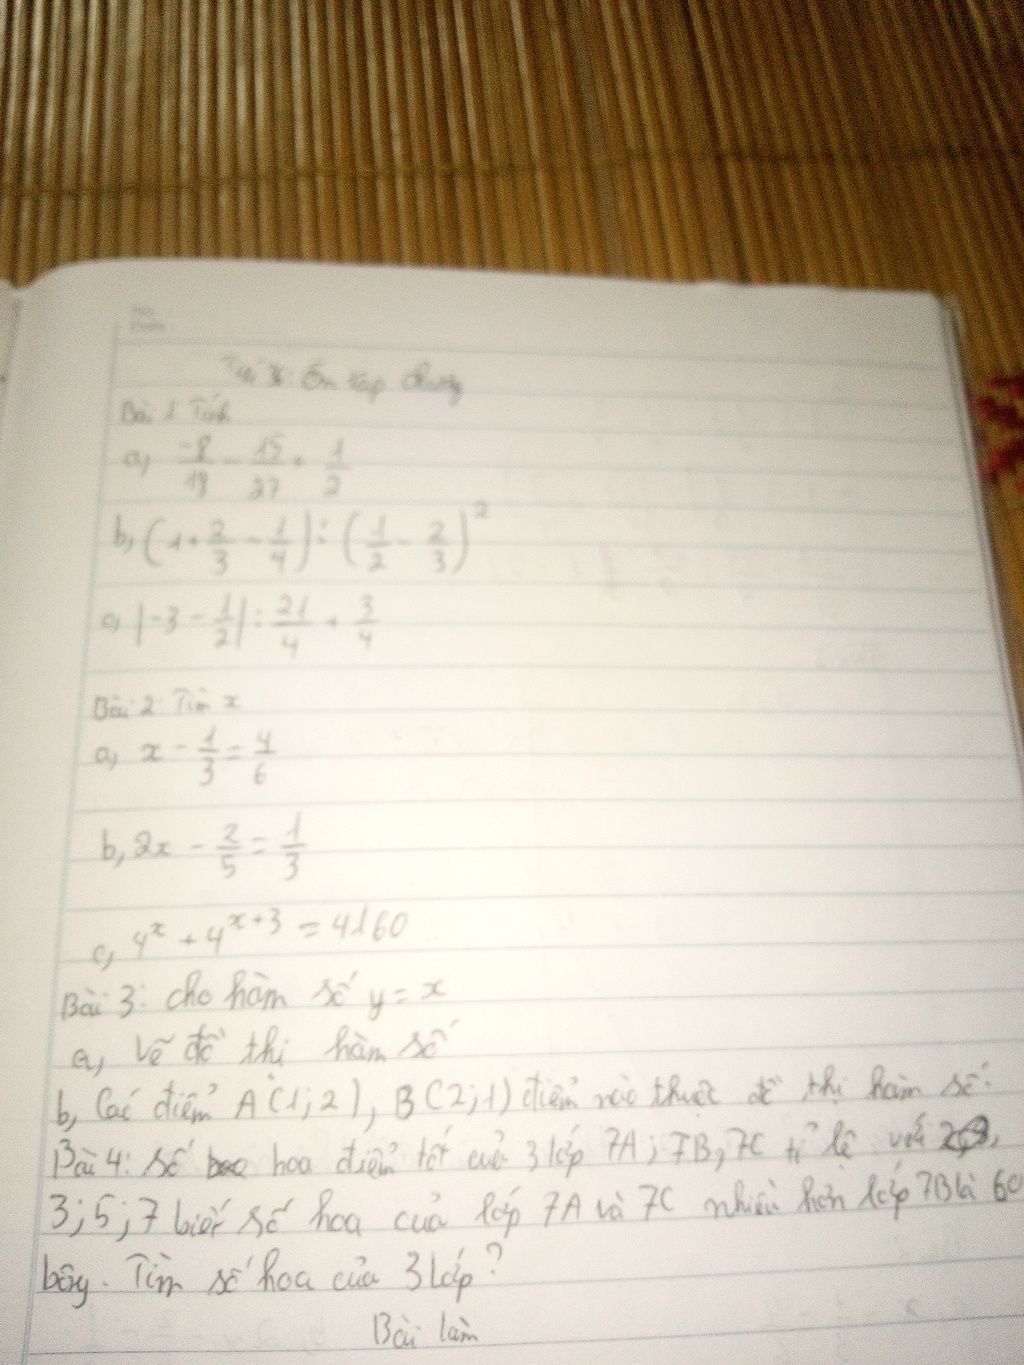 Ôn tập chung
Bài 1 Tính
a, -8/19 - 15/27 + 1/2
b, (1+2/3 - 1/4) : (1/2 - 2/3)²
c, |-3 - 1/2| : 21/4 + 3/4
Bài 2: Tìm x
a, x - 1/3 = 4/6
b, 2x - 2/5 = 1/3
c, 4^x + 4^(x+3) = 4160
Bài 3: cho hàm số y = x
a, vẽ đồ thị hàm số
b, Các điểm A(1;2), B(2;1) điểm nào thuộc đồ thị hàm số.
Bài 4: số hoa điểm tốt của 3 lớp 7A; 7B, 7C tỉ lệ với
3; 5; 7 biết số hoa của lớp 7A và 7C nhiều hơn lớp 7B là 60
bông. Tìm số hoa của 3 lớp?
Bài làm